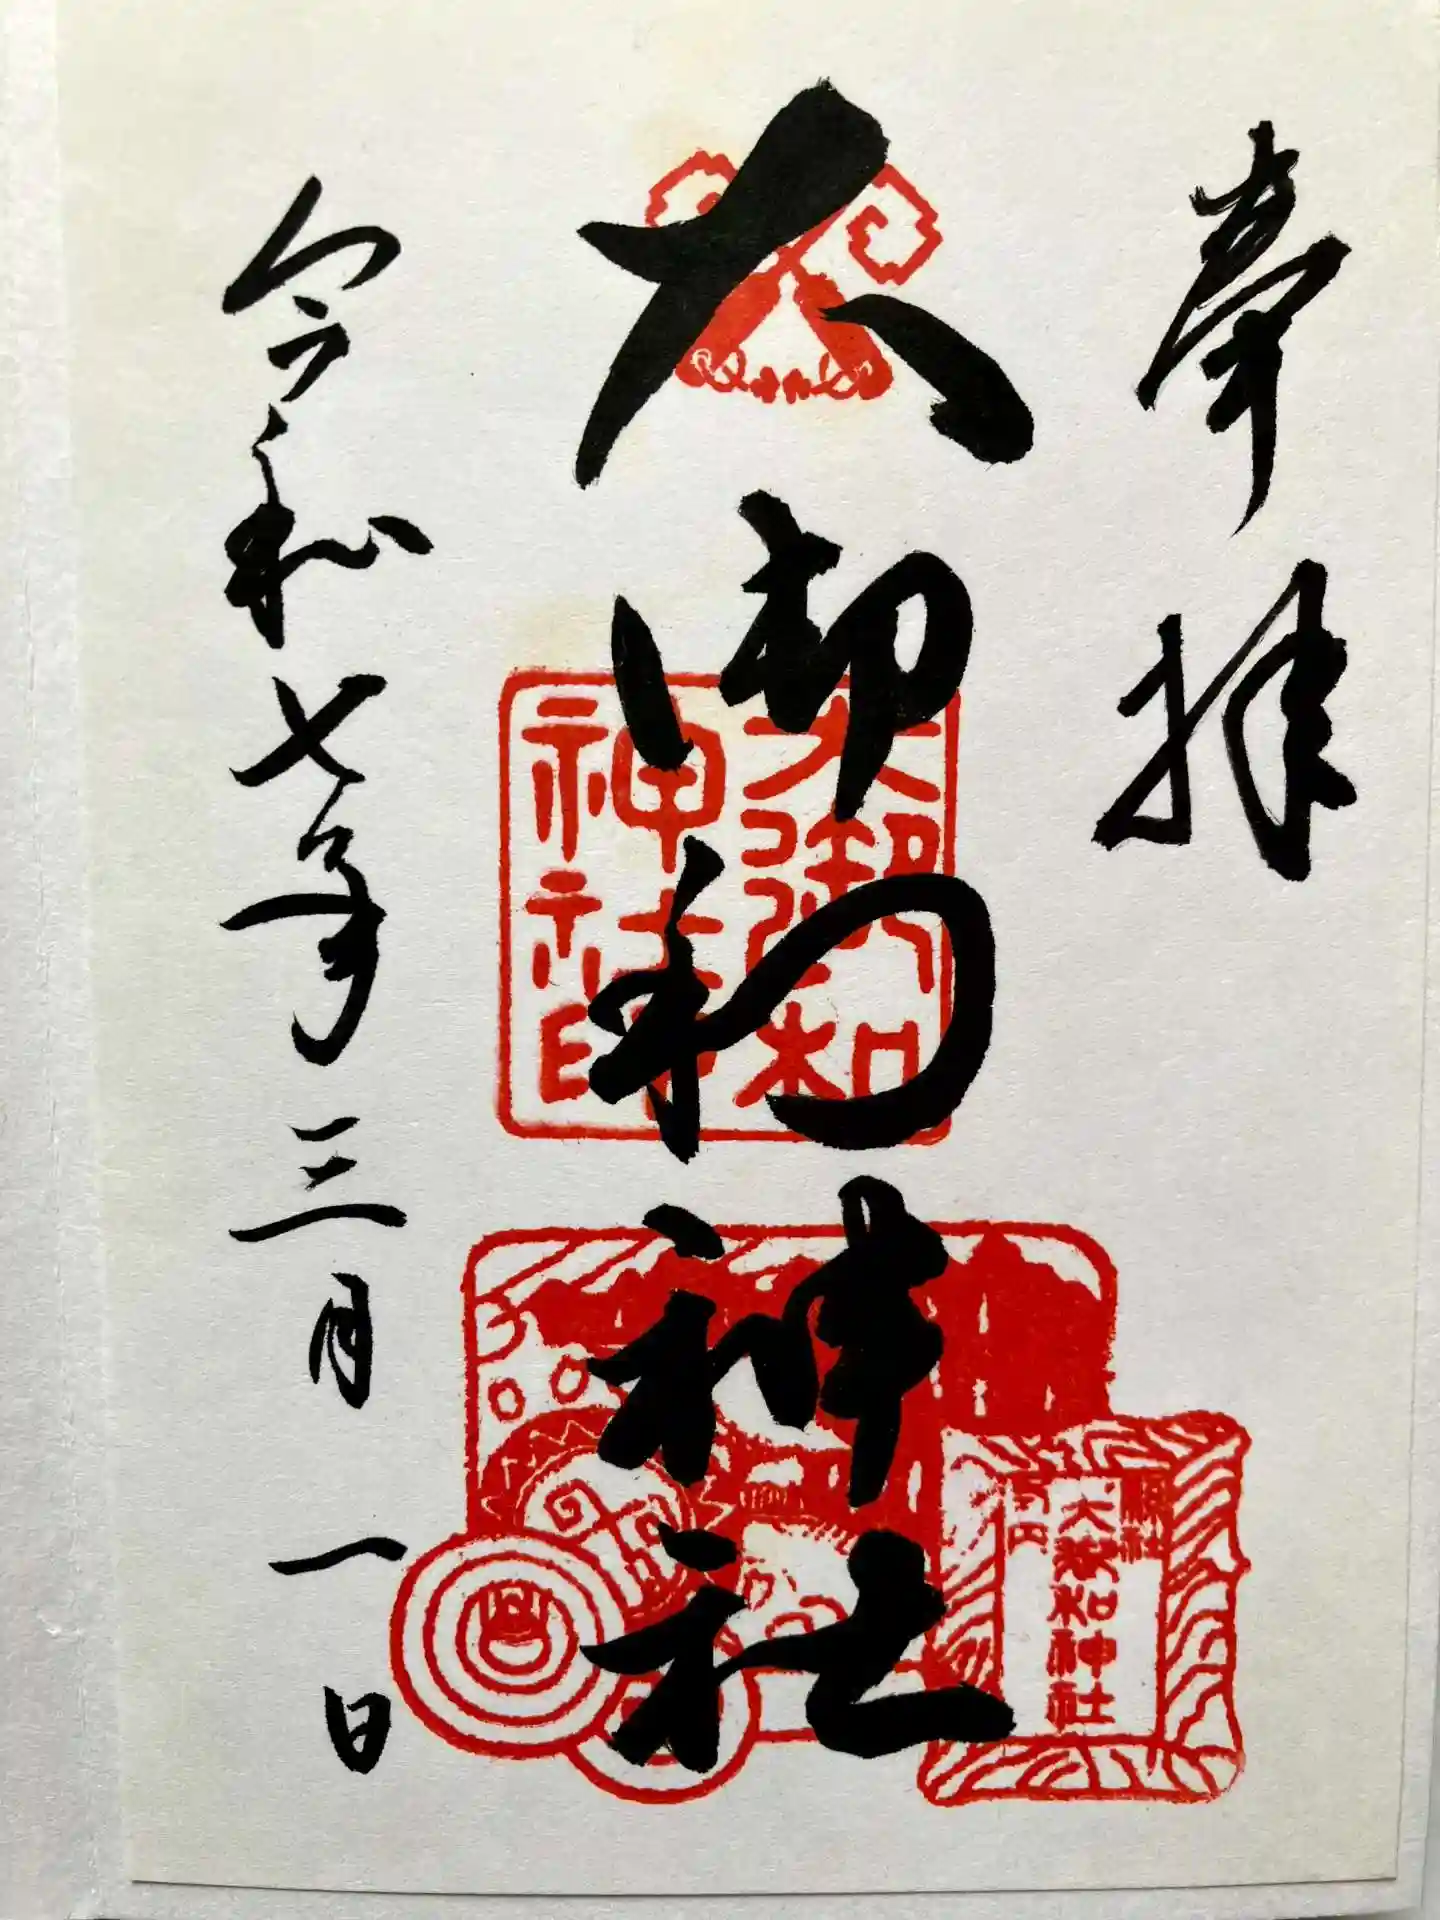 奉拝
大御和神社
令和七年三月一日
大御和
神社印
大御和神社